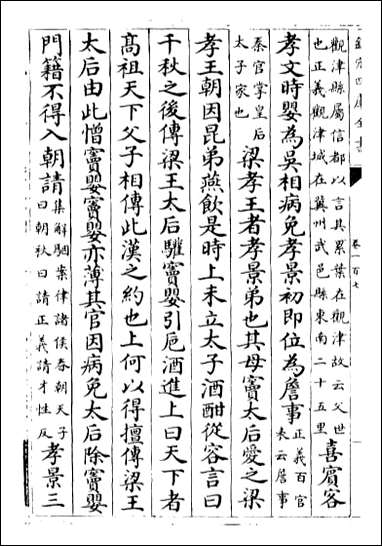 欽定四庫全書
卷一百七
觀津縣屬信都以言其累葉在觀津故云父世
也正義觀津城在冀州武邑縣東南二十五里
喜賓客
孝文時嬰為吳相病免孝景初即位為詹事
正義百官
表云詹事
秦官掌皇后
太子家也
梁孝王者孝景弟也其母竇太后愛之梁
孝王朝因昆弟燕飲是時上未立太子酒酣從容言曰
千秋之後傳梁王太后驩竇嬰引巵酒進上曰天下者
高祖天下父子相傳此漢之約也上何以得擅傳梁王
太后由此憎竇嬰竇嬰亦薄其官因病免太后除竇嬰
門籍不得入朝請
集解駰案律諸侯春朝天子
曰朝秋曰請正義請才性反
孝景三